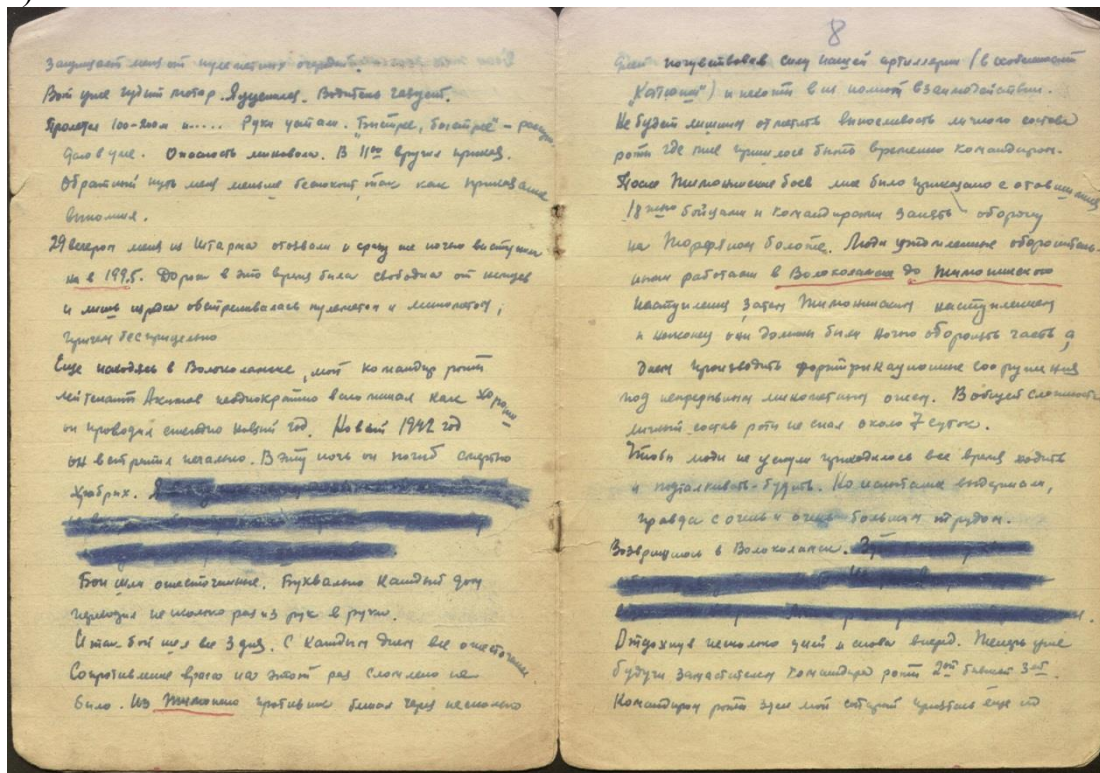 защищает меня от пулеметных очередей.
Вот уже гудит мотор. Я уцепился. Водитель газует.
Пролетел 100-200м и..... Руки устали. "Быстрее, быстрее" –
было в уме. Опасность миновала. В 11⁰⁰ вручил приказ.
Обратный путь меня меньше беспокоит, так как приказание
выполнил.
29 вечером меня из Штарма отозвали и сразу же ночью выступили
на в 199,5. Дорога в это время была свободна от немцев
и лишь изредка обстреливалась пулеметом и минометом,
причем бесприцельно
Еще находясь в Волоколамске, мой командир роты
лейтенант Акимов неоднократно вспоминал как хорошо
он проводил ежегодно Новый год. Новый 1942 год
он встретил печально. В эту ночь он погиб смертью
храбрых.
Бои шли ожесточенные. Буквально каждый дом
переходил несколько раз из рук в руки.
И так бой шел все 3 дня. С каждым днем все ожесточеннее
Сопротивление врага на этот раз сломлено не
было. Из Тимонино противник бежал через несколько
8
дней почувствовав силу нашей артиллерии (в особенности
"Катюши") и пехоты в их полном взаимодействии.
Не будет лишним отметить выносливость личного состава
роты где мне пришлось быть временно командиром.
После Тимонинских боев мне было приказано с оставшимися
18 тью бойцами и командирами занять оборону
на Торфяном болоте. Люди утомленные
работами в Волоколамске до Тимонинского
наступления, затем Тимонинским наступлением
и наконец они должны были ночью оборонять часть, а
днем производить фортификационные сооружения
под непрерывным минометным огнем. В общей сложности
личный состав роты не спал около 7 суток.
Чтобы люди не уснули приходилось все время ходить
и подталкивать-будить. Но испытание выдержали,
правда с очень и очень большим трудом.
Возвращаюсь в Волоколамск.
Отдохнув несколько дней и снова вперед. Теперь уже
будучи заместителем командира роты 2ой бывшей 3ей.
Командиром роты здесь мой старый приятель еще по